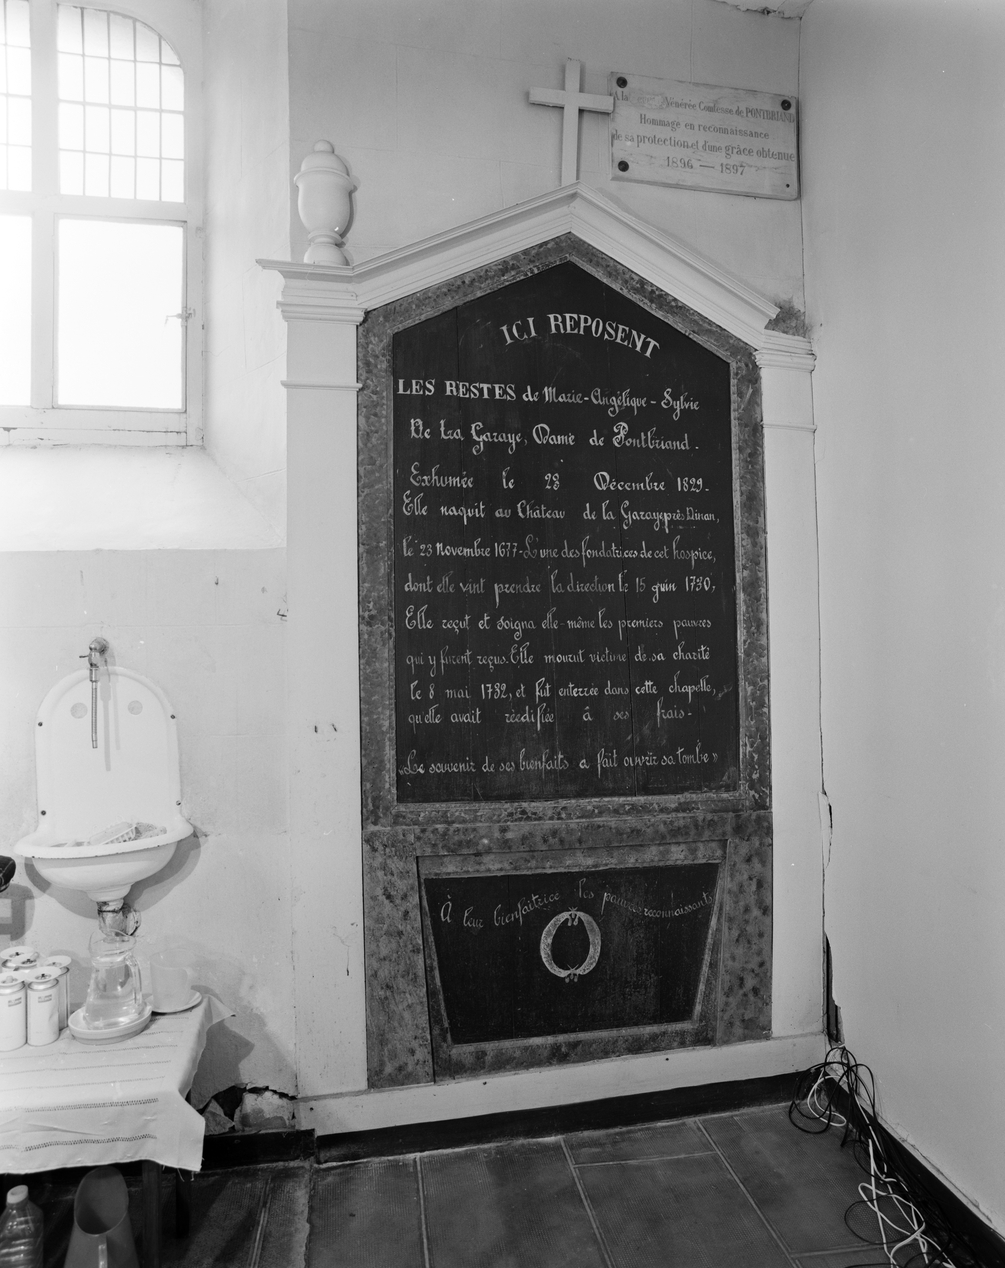 A la Vénérée Comtesse de PONTBRIAND
Hommage en reconnaissance
de sa protection et d'une grâce obtenue
1896 — 1897
ICI REPOSENT
LES RESTES de Marie-Angélique-Sylvie
De La Garaye, Dame de Pontbriand.
Exhumée le 23 Décembre 1829.
Elle naquit au Château de la Garaye près Dinan,
le 23 Novembre 1677. L'une des fondatrices de cet hospice,
dont elle vint prendre la direction le 15 juin 1730,
Elle reçut et soigna elle-même les premiers pauvres
qui y furent reçus. Elle mourut victime de sa charité
le 8 mai 1732, et fut enterrée dans cette chapelle,
qu'elle avait réédifiée à ses frais.
«Le souvenir de ses bienfaits a fait ouvrir sa tombe»
À leur bienfaitrice les pauvres reconnaissants